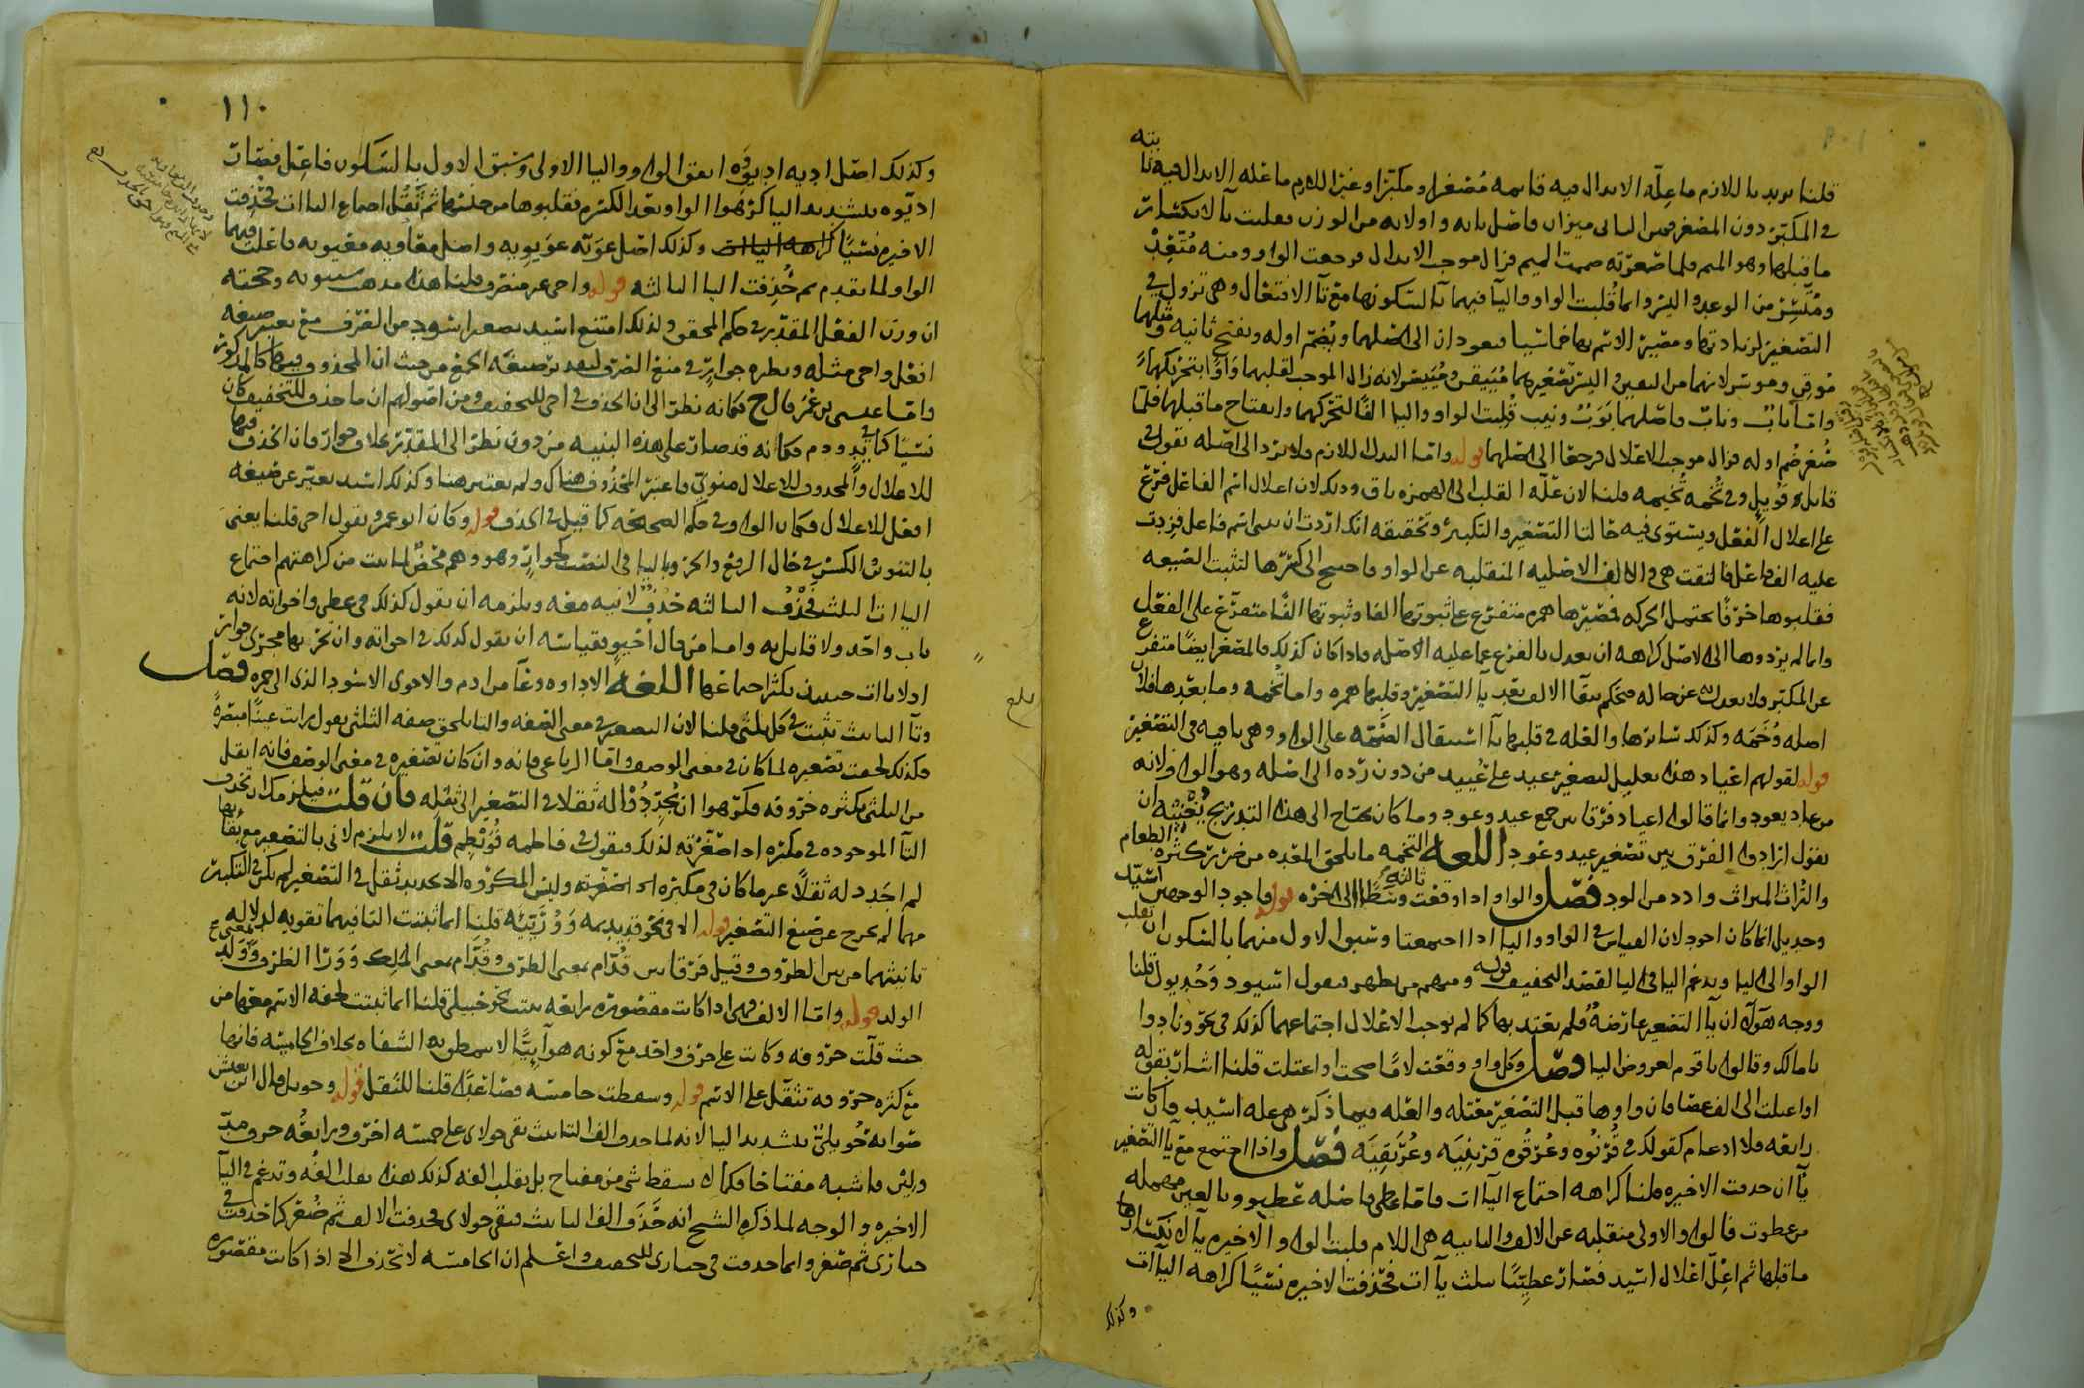 قلنا يريد باللازم ما علة الابدال فيه قايمه مصغرا ومكبرا وغير اللازم ما علة الابدال فيه ثابته
في المكبر دون المصغر فمن الثاني ميزان فاصل يايه واو لانه من الوزن فقلبت يا لانكسار
ما قبلها وهو الميم فلما صغرته ضمت الميم فزال موجب الابدال فرجعت الواو ومنه متعد
ومتسر من الوعد واليسر وانما قلبت الواو واليا فيهما تا لسكونها مع تا الافتعال وهي تزول في
التصغير لزيادتها ومصير الاسم بها خماسيا فيعودان الى اصلهما ويضم اوله ويفتح ثانيه ومثلهما
موقن وموسر لانهما من اليقين واليسر تصغيرهما مييقن ومييسر لانه زال الموجب لقلبهما واوا بتحركهما
واما باب وناب فاصلهما بوب ونيب قلبت الواو واليا الفا لتحركهما وانفتاح ما قبلهما فلما
صغر ضم اوله فزال موجب الاعلال فرجعا الى اصلهما قوله واما البدل اللازم فلا يرد الى اصله تقول في
قايل قويل وفي تخمه تخيمه قلنا لان علة القلب الى الهمزه باق وذلك لان اعلال اسم الفاعل فرع
على اعلال الفعل ويستوي فيه حالتا التصغير والتكبير وتحقيقه انك اردت ان تبني اسم فاعل فزدت
عليه الف فاعل فالتقت هي والالف الاصليه المنقلبه عن الواو فاحتيج الى كسرها لتثبت الصيغه
فقلبوها حرفا يحتمل الحركه فمصيرها همزه متفرع على ثبوتها الفا وثبوتها الفا متفرع على الفعل
وانما لم يردوها الى الاصل كراهه ان يعدل بالفرع عما عليه الاصل فاذا كان كذلك فالمصغر ايضا متفرع
عن المكبر فلا يعدل به عن حاله فتحكم ببقا الالف بعد يا التصغير وقلبها همزه واما تخمه وما بعدها فلان
اصله وخمه وكذلك سايرها والعله في قلبها تا استثقال الضمه على الواو وهي باقيه في التصغير
قوله لقولهم اعياد هذا تعليل لتصغير عيد على عييد من دون رده الى اصله وهو الواو لانه
من عاد يعود وانما قالوا اعياد فرقا بين جمع عيد وعود وما كان يحتاج الى هذا التدريج بغيته ان
يقول ارادوا الفرق بين تصغير عيد وعود اللغه التخمه ما يلحق المعده من ضرر كثره الطعام
والتراث الميراث وادد من الود فصل والواو اذا وقعت وسطا ثالثه الى اخره قوله فاجود الوجهين اسيد
وجديل انما كان اجود لان القياس في الواو واليا اذا اجتمعتا وسبق الاول منهما بالسكون ان تقلب
الواو الى اليا ويدغم اليا في اليا لقصد التخفيف قوله ومنهم من يظهر فيقول اسيود وجديول قلنا
ووجه هولاء ان يا التصغير عارضه فلم يعتد بها كما لم يوجب الاعلال اجتماعهما كذلك في نحو وناد وا
يا مالك وقالوا يا قوم لعروض اليا فصل وكل واو وقعت لاما صحت او اعتلت قلنا اشار بقوله
او اعتلت الى الف عصا فان واوها قبل التصغير معتله والعله فيما ذكر هي علة اسيد فان كانت
رابعه فلا ادغام كقولك في قرنوه وعرقوه قرينيه وعريقيه فصل واذا اجتمع مع يا التصغير
يا ان حذفت الاخيره قلنا كراهه اجتماع اليآات فاما عطي فاصله عطيو وبالعين مهمله
من عطوت فالواو والاولى منقلبه عن الالف والثانيه هي اللام قلبت الواو والاخيره يا لانكسار
ما قبلها ثم اعل اعلال اسيد فصار عطييا بثلث يآات فحذفت الاخيره نسيا كراهه اليآات
وكذلك
١١٠
وكذلك اصل اديه اديوه اتفق الواو واليا الاولى وسبق الاول بالسكون فاعل فصارت
اديوه بتشديد اليا كرهوا الواو بعد الكسره فقلبوها من جنسها ثم ثقل اجتماع اليآات فحذفت
الاخيره نسيا كراهه اليآات وكذلك اصل عويه عويويه واصل معاويه معيويه فاعلت فيهما
الواو لما تقدم ثم حذفت اليا الثالثه قوله واحي غير منصرف قلنا هذا مذهب سيبويه وحجته
ان وزن الفعل المقدر في حكم المحقق ولذلك امتنع اسيد تصغير اسود من الصرف مع تغيير صيغه
افعل واحي مثله ونظيره جوار في منع الصرف لتقدير صيغه الجمع من حيث ان المحذوف فيها كالمذكور
واما عيسى بن عمر قال ح فكانه نظر الى ان الحذف في احي للتخفيف ومن اصولهم ان ما حذف للتخفيف كان
نسيا كما في يد ودم فكانه قد صار على هذه البنيه من دون نظر الى المقدر بخلاف جوار فان الحذف فيها
للاعلال والمحذوف للاعلال منوي فاعتبر المحذوف هناك ولم يعتبر هنا وكذلك اسيد تغير عن صيغه
افعل للاعلال فكان الواو في حكم الصحيحه كما قيل في الحذف قوله وكان ابو عمرو يقول احي قلنا يعني
بالتنوين الكسر في حال الرفع والجر وباليا في النصب كجوار وهو وهم محض لما ثبت من كراهتهم اجتماع
اليآات الثلث فحذف الثالثه حذف لا نيه معه ويلزمه ان يقول كذلك في عطي واخواته لانه
باب واحد ولا قايل به واما من قال احيو فقياسه ان يقول كذلك في اخواته وان يجريها مجرى جوار
اذ لا يآات حينئذ يكثر اجتماعها اللغه الاداوه وعا من ادم والاحوى الاسود الذي الى حمره فصل
وتا التانيث تثبت في كل ثلثي قلنا لان التصغير في معنى الصفه والتا يلحق صفه الثلثي يقول رايت عينا مبصره
فكذلك لحقت تصغيره لما كان في معنى الوصف واما الرباعي فانه وان كان تصغيره في معنى الوصف فانه اثقل
من الثلثي بكثره حروفه فكرهوا ان يجددوا له ثقلا في التصغير الى ثقله فان قلت فيلزمك ان تحذف
التا الموجوده في مكبره اذا صغرته لذلك فيقول في فاطمه فويطم قلت لا يلزم لاني بالتصغير مع بقائها
لم اجدد له ثقلا غير ما كان في مكبره اذ صغرته وليس المكروه الا تجديد ثقل في التصغير لم يكن في التكبير
مهما لم يخرج عن صيغ التصغير قوله الا في نحو قديديمه ووريئه قلنا انما ثبتت التا فيهما تقويه لدلاله
تانيثهما من بين الظروف وقيل فرقا بين قدام بمعنى الظرف وقدام بمعنى الملك وورا الظرف وولد
الولد قوله واما الالف فهي اذا كانت مقصوره رابعه ثبتت نحو حبيلى قلنا انما ثبتت لخفه الاسم معها من
حيث قلت حروفه وكانت على حرف واحد مع كونه هوآييا لا يسطو به الشفاه بخلاف الخامسه فانها
مع كثره حروفه تثقل على الاسم قوله وسقطت خامسه فصاعدا قلنا للثقل قوله وحويل قال ابن يعيش
صوابه حويلي بتشديد اليا لانه لما حذف الف التانيث بقي حولاي على خمسه احرف ورابعه حرف مد
ولين فاشبه مفتاحا فكما لا يسقط شي من مفتاح بل يقلب الفه كذلك هذا يقلب الفه وتدغم في اليا
الاخيره والوجه لما ذكره الشيخ انه حذف الف التانيث فبقي حولاي فحذفت الالف ثم صغر كما حذفت في
حبارى ثم صغر وانما حذفت في حبارى للتخفيف واعلم ان الخامسه لا تحذف الا اذا كانت مقصوره
بلغ